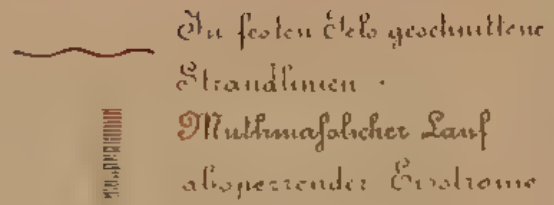 In festen Fels geschnittene
Strandlinien.
Muthmaſslicher Lauf
absperrender Eisströme